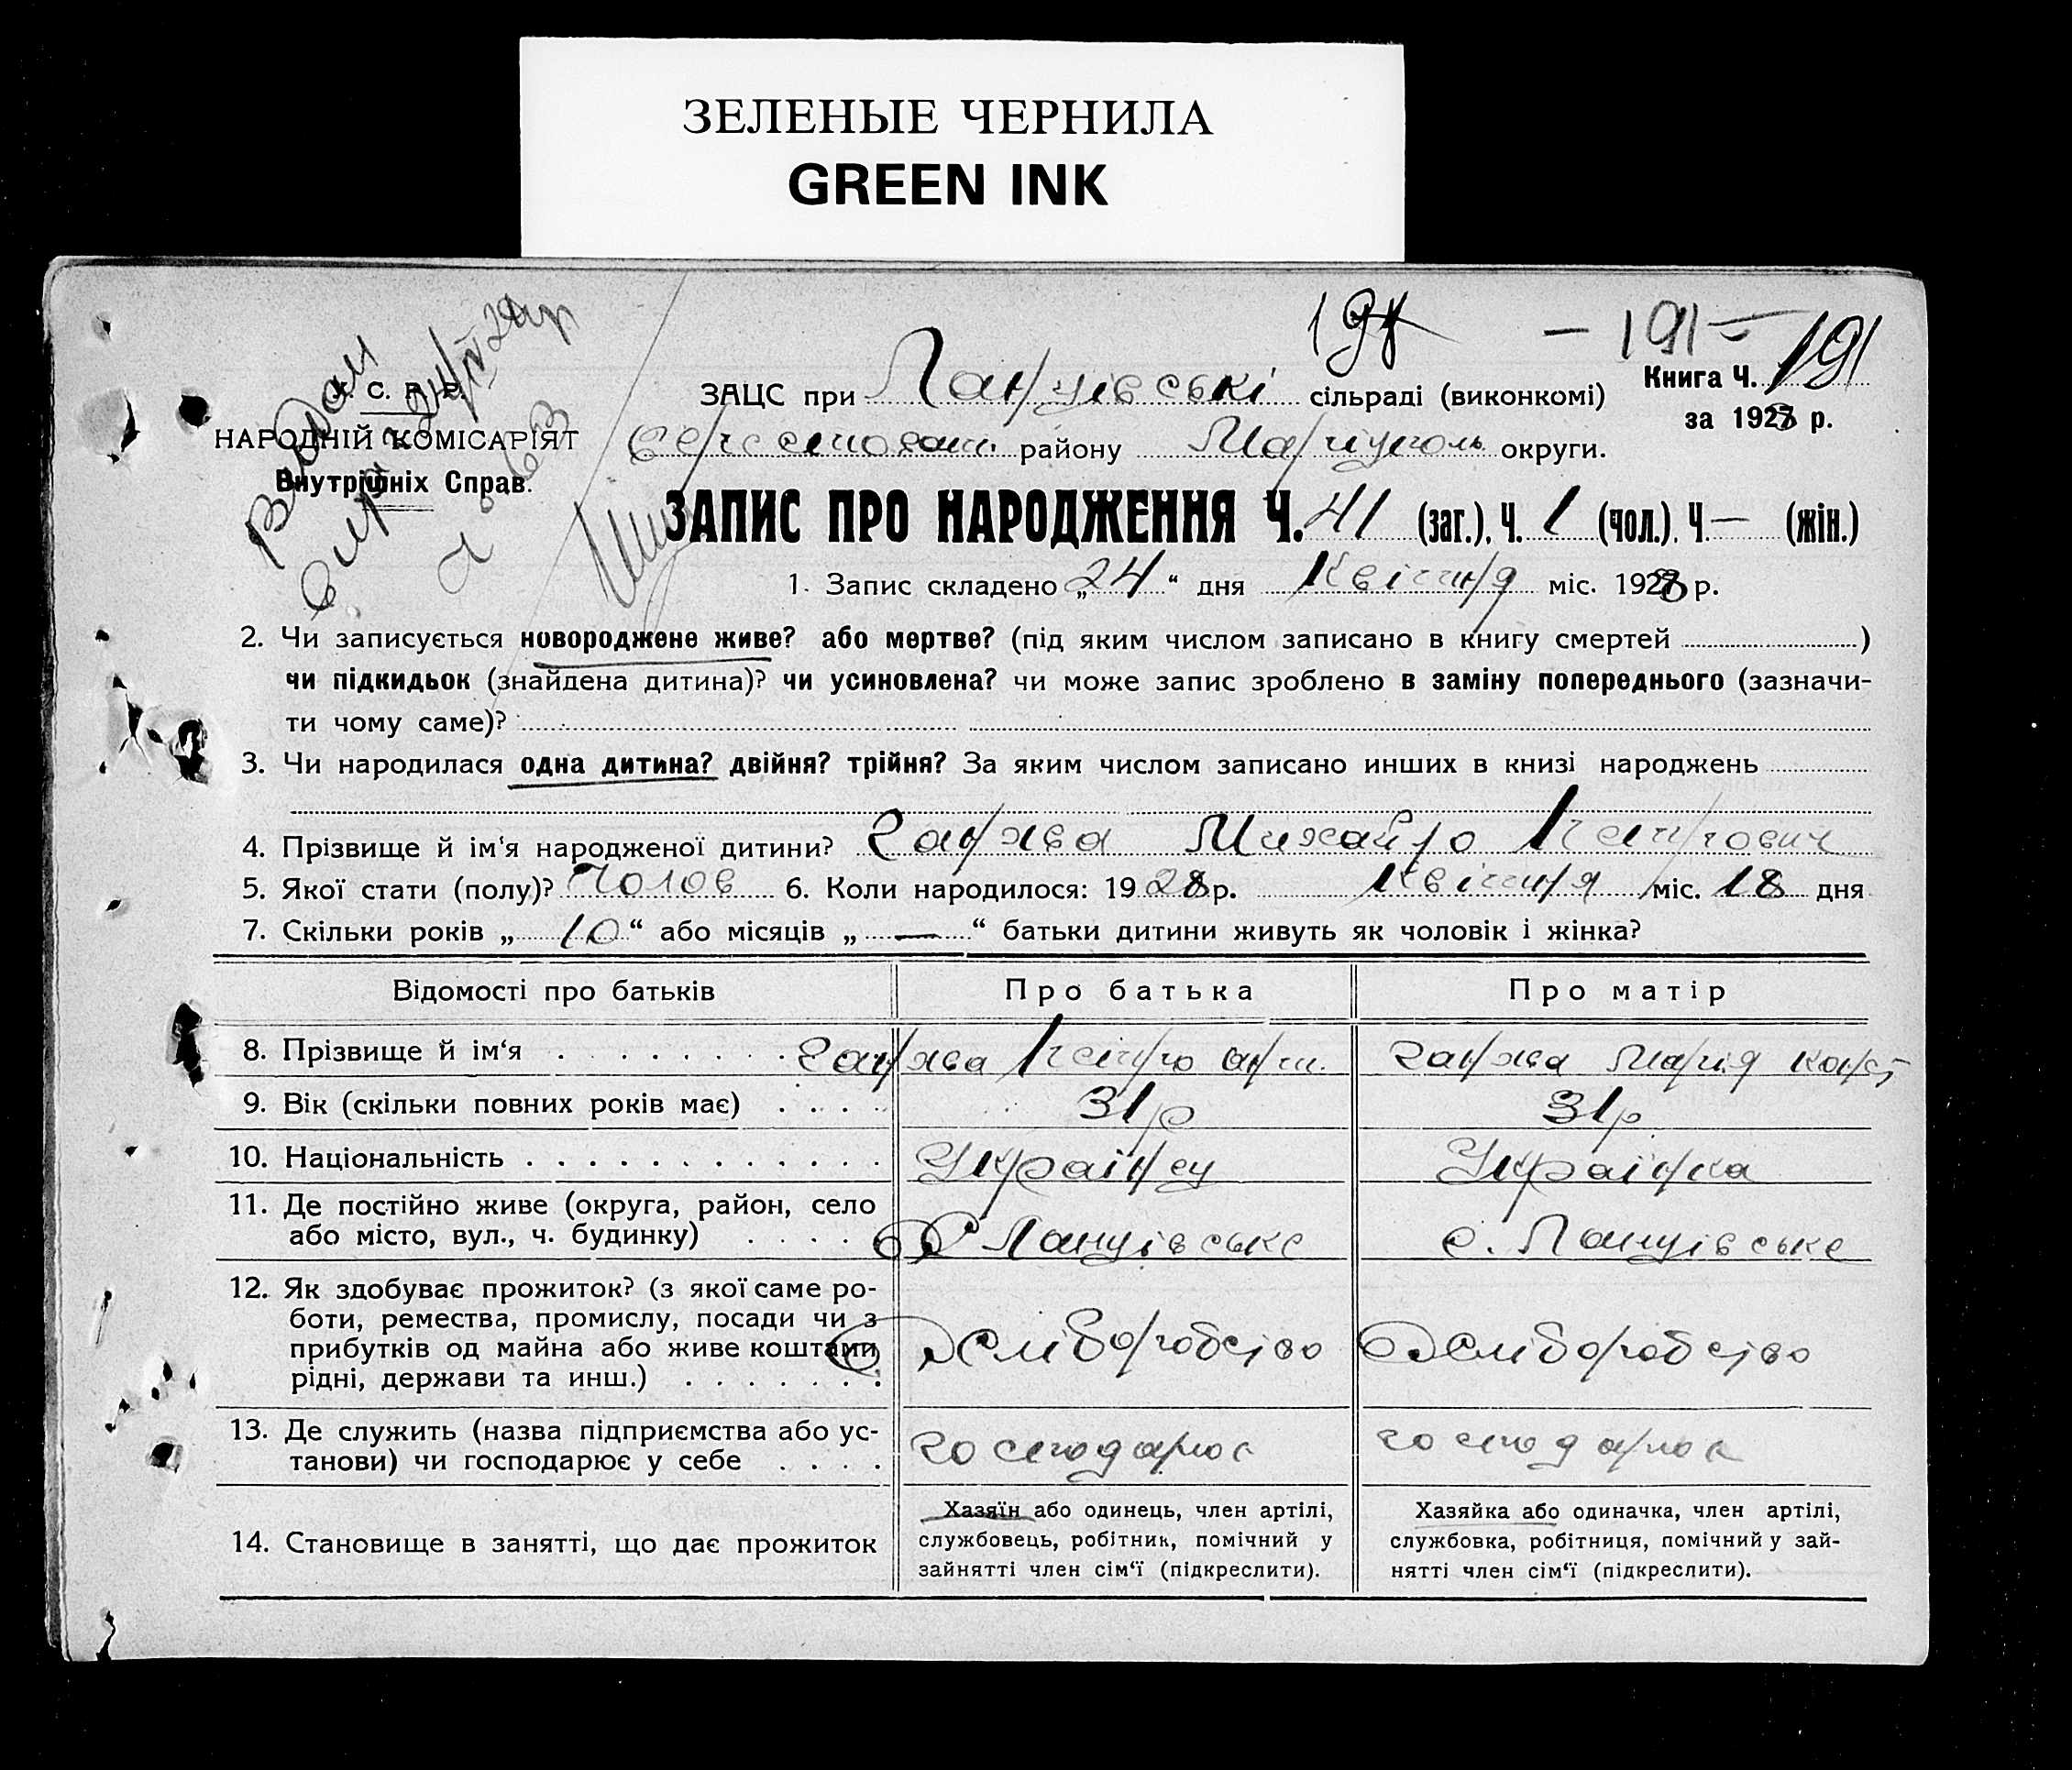 ЗЕЛЕНЫЕ ЧЕРНИЛА
GREEN INK
198 — 191 —
С. Р. Р.
ЗАЦС при сільраді (виконкомі)
Книга Ч. 191
за 1928 р.
НАРОДНІЙ КОМІСАРІЯТ
Внутрішніх Справ.
району Маріуполь округи.
ЗАПИС ПРО НАРОДЖЕННЯ Ч. 41 (заг.), Ч. 1 (чол.), Ч. — (жін.)
1. Запис складено „24“ дня Квітня міс. 1928 р.
2. Чи записується новороджене живе? або мертве? (під яким числом записано в книгу смертей )
чи підкидьок (знайдена дитина)? чи усиновлена? чи може запис зроблено в заміну попереднього (зазначи-
ти чому саме)?
3. Чи народилася одна дитина? двійня? трійня? За яким числом записано инших в книзі народжень
4. Прізвище й ім‘я народженої дитини? Ганжа Михайло
5. Якої стати (полу)? Чолов 6. Коли народилося: 1928 р. Квітня міс. 18 дня
7. Скільки років „10“ або місяців „—“ батьки дитини живуть як чоловік і жінка?
Відомості про батьків Про батька Про матір
8. Прізвище й ім‘я Ганжа Ганжа Марія
9. Вік (скільки повних років має) 31 р 31 р
10. Національність Українец Українка
11. Де постійно живе (округа, район, село
або місто, вул., ч. будинку) с. Ланцівське с. Ланцівське
12. Як здобуває прожиток? (з якої саме ро-
боти, ремества, промислу, посади чи з
прибутків од майна або живе коштами
рідні, держави та инш.) Хліборобство Хліборобство
13. Де служить (назва підприємства або ус-
танови) чи господарює у себе господарює господарює
14. Становище в занятті, що дає прожиток
Хазяїн або одинець, член артілі,
службовець, робітник, помічний у
зайнятті член сім‘ї (підкреслити).
Хазяйка або одиначка, член артілі,
службовка, робітниця, помічний у зай-
нятті член сім‘ї (підкреслити).